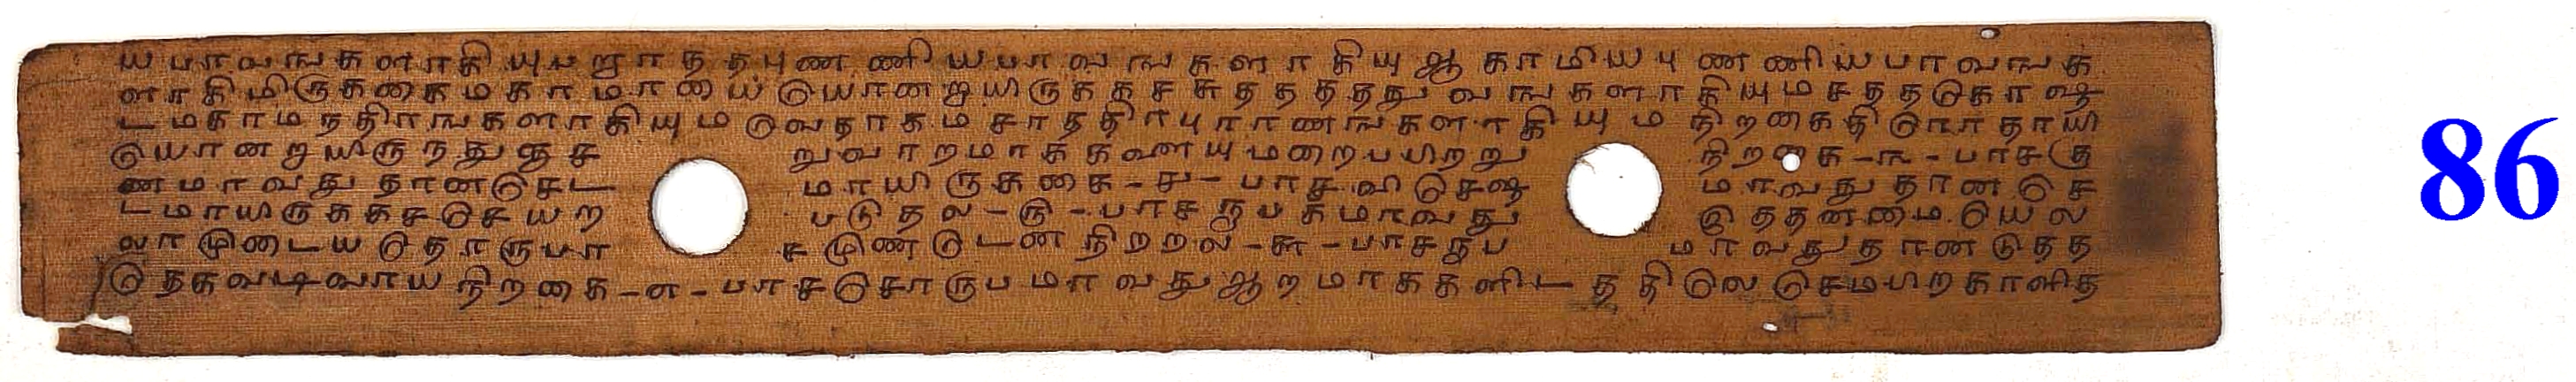 ய பாவஙகளாகியுமறாதத புணணியபாவஙகளாகியு ஆகாமிய புணணியபாவஙக
ளாகிமிருககைமகாமாயையெயானறுயிருகக சுததததுவஙகளாகியும சததகோஷ
டமகாமநதிரஙகளாகியும வெதாகம சாததிரபுராணஙகளாகியும நிறகைதிரொதாயி
யொனறுயிருநதுஞ ச றுவாறமாககணையுமறைபயிறறு நிறகை - ௩ - பாசகு
ணமாவது தானசெட மாயிருககை - ௪ - பாச விசெஷ மாவது தானசெ
டமாயிருககசசெயற படுதல - ௫ - பாசரூபகமாவது இததனமையெல
லாமுடையதொருபா சமுணடென நிறறல - ௬ - பாசரூப மாவதுதானதத
தெகவடிவாய நிறகை - ௭ - பாசசொரூபமாவது ஆறமாககளிடததிலெ செமபிறகாளித
86